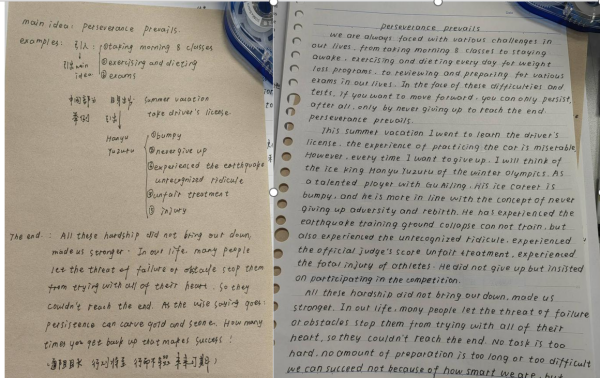 main idea: perseverance prevails.
examples: 引入: ①taking morning 8 classes
②exercising and dieting
idea ③exams
summer vacation
take driver's license.
Hanyu ①bumpy
Yuzuru ②never give up
③experienced the earthquake
unrecognized ridicule
④unfair treatment
⑤injury
The end: All these hardship did not bring our down,
made us stronger. In our life, many people
let the threat of failure or obstacle stop them
from trying with all of their heart. So they
couldn't reach the end. As the wise saying goes:
persistence can carve gold and stone. How many
times you get back up that makes success!
perseverance prevails
We are always faced with various challenges in
our lives, from taking morning 8 classes to staying
awake, exercising and dieting every day for weight
loss programs, to reviewing and preparing for various
exams in our lives. In the face of these difficulties and
tests, if you want to move forward, you can only persist,
after all, only by never giving up to reach the end.
perseverance prevails.
This summer vacation I went to learn the driver's
license, the experience of practicing the car is miserable,
However, every time I want to give up, I will think of
the ice king Hanyu Yuzuru of the winter Olympics. As
a talented player with Gu Ailing, His ice career is
bumpy, and he is more in line with the concept of never
Giving up adversity and rebirth. He has experienced the
earthquake training ground collapse can not train, but
also experienced the unrecognized ridicule, experienced
the official judge's score unfair treatment, experienced
the fatal injury of athletes. He did not give up but insisted
on participating in the competition.
All these hardship did not bring our down, made us
stronger. In our life, many people let the threat of failure
or obstacles stop them from trying with all of their
heart, so they couldn't reach the end. No task is too
hard, no amount of preparation is too long or too difficult
we can succeed not because of how smart we are, but